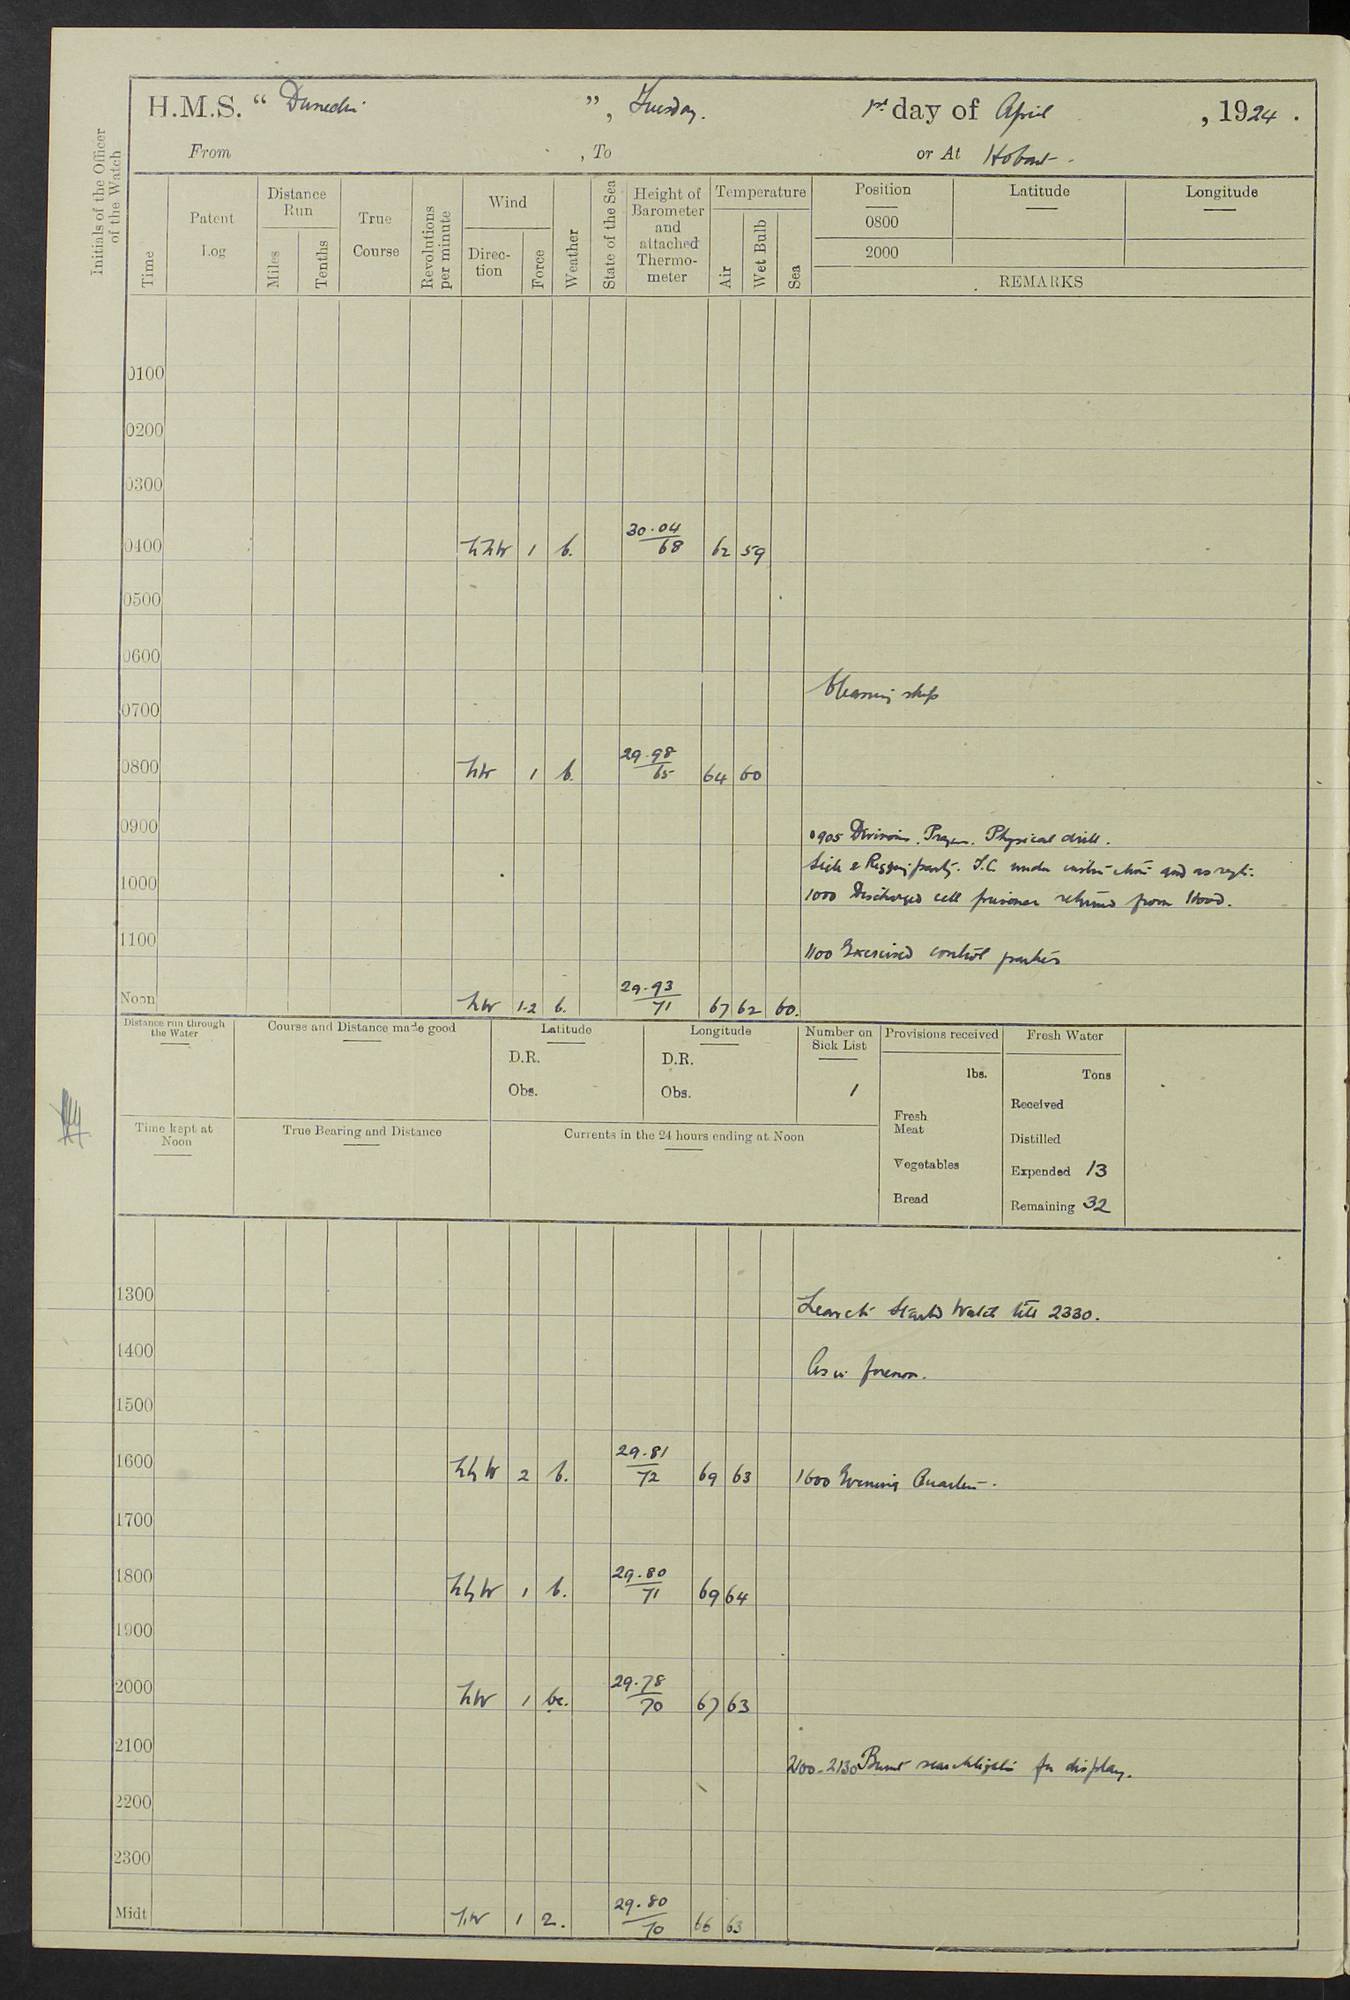 H.M.S. “ Dunedin ”, Tuesday. 1st day of April, 1924.
From , To or At Hobart.
Initials of the Officer of the Watch
Time
Patent Log
Distance Run
Miles
Tenths
True Course
Revolutions per minute
Wind
Direction
Force
Weather
State of the Sea
Height of Barometer and attached Thermometer
Temperature
Air
Wet Bulb
Sea
Position Latitude Longitude
0800
2000
REMARKS
0100
0200
0300
0400 NNW 1 b. 30.04/68 62 59
0500
0600
Cleaning ship
0700
0800 NW 1 b. 29.98/65 64 60
0900
0905 Divisions. Prayers. Physical drill.
Side & Rigging party. T.C. under instruction and as reqd.
1000
1000 Discharged cell prisoner returned from Hood.
1100
1100 Exercised control parties
Noon NW 1-2 b. 29.93/71 67 62 60.
Distance run through the Water
Course and Distance made good
Latitude
D.R.
Obs.
Longitude
D.R.
Obs.
Number on Sick List
1
Provisions received
lbs.
Fresh Meat
Vegetables
Bread
Fresh Water
Tons
Received
Distilled
Expended 13
Remaining 32
Time kept at Noon
True Bearing and Distance
Currents in the 24 hours ending at Noon
1300
Leave to Starbd Watch till 2330.
1400
As in forenoon.
1500
1600 NNW 2 b. 29.81/72 69 63 1600 Evening Quarters.
1700
1800 NNW 1 b. 29.80/71 69 64
1900
2000 NW 1 bc. 29.78/70 67 63
2100
2100-2130 Burnt searchlights for display.
2200
2300
Midt NW 1 2. 29.80/70 66 63